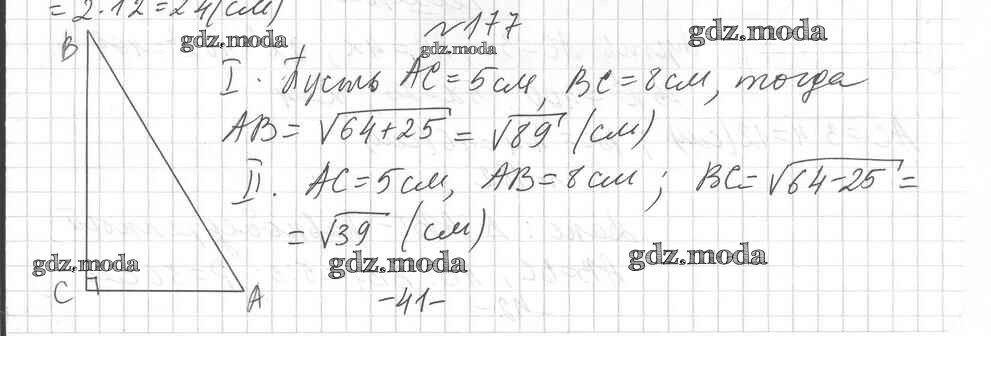 = 2·12 = 24 (см)
№177
gdz.moda
gdz.moda
gdz.moda
B
I. Пусть AC = 5 см, BC = 8 см, тогда
AB = √64+25 = √89 (см)
II. AC = 5 см, AB = 8 см; BC = √64-25 =
= √39 (см)
gdz.moda
gdz.moda
gdz.moda
C
A
-41-